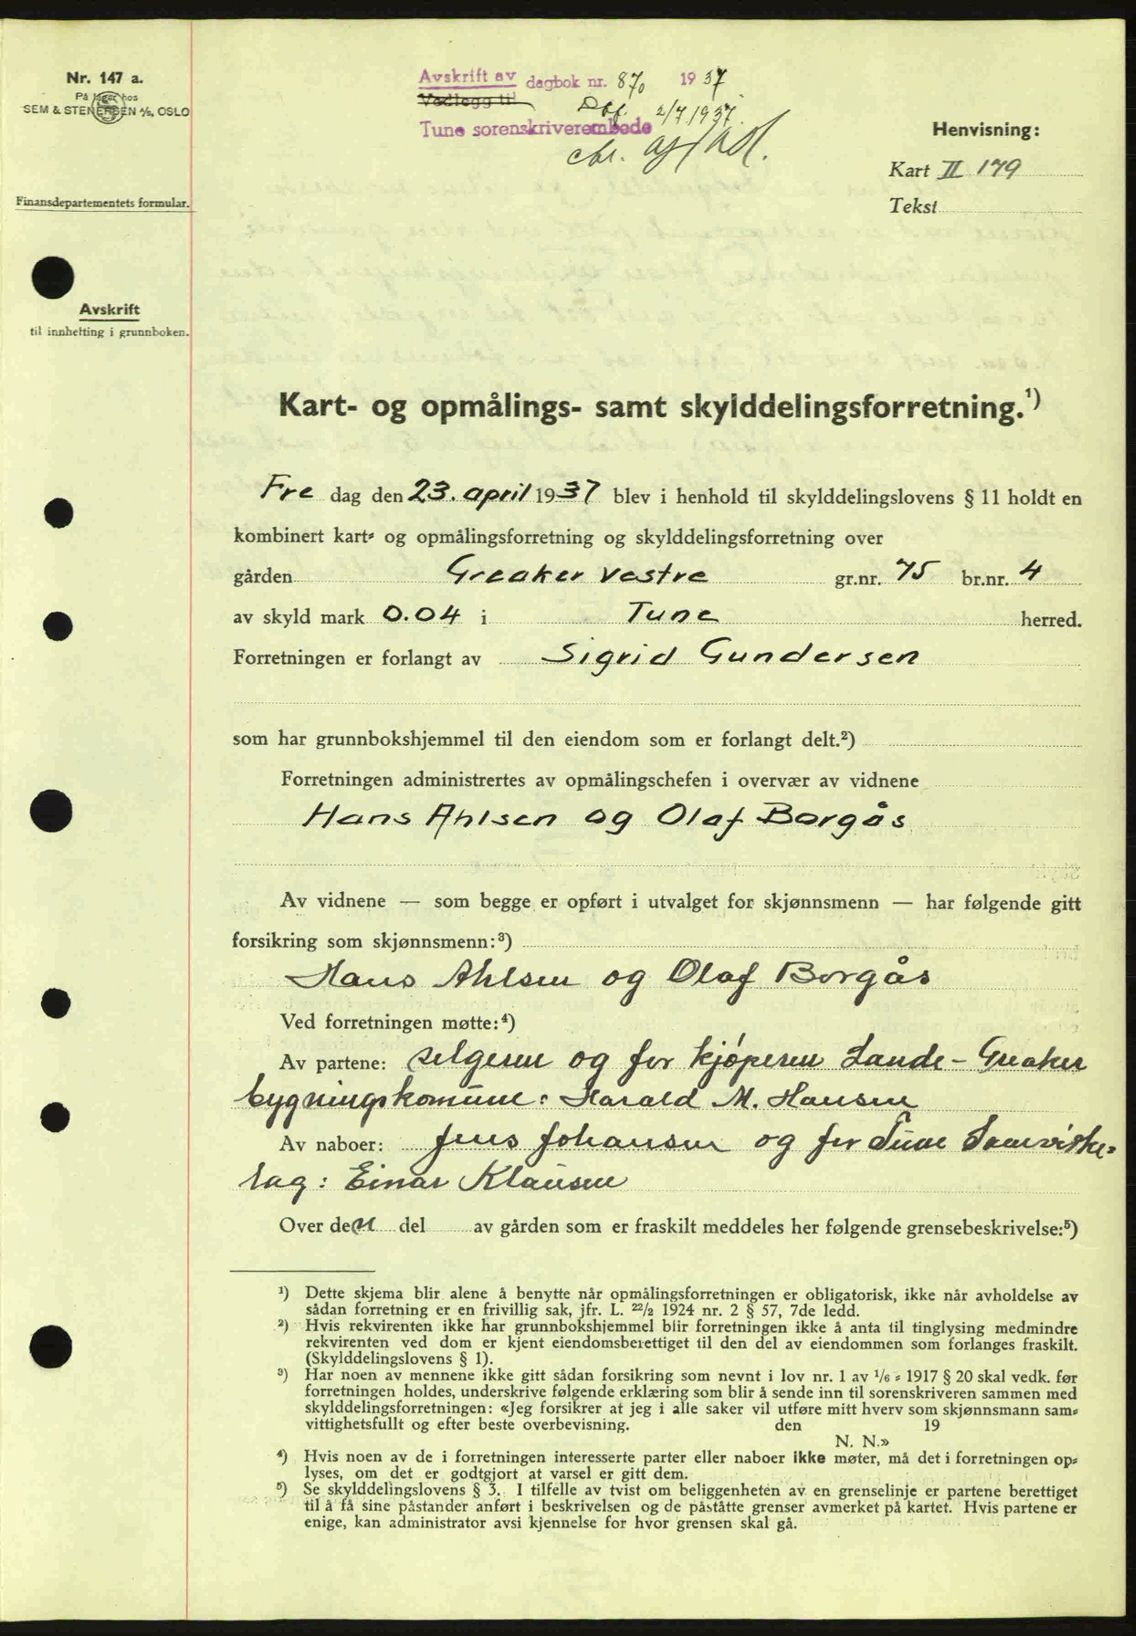 Nr. 147 a.
På lager hos
SEM & STENERSEN A/S, OSLO
Finansdepartementets formular.
Avskrift
til innhefting i grunnboken.
Avskrift av dagbok nr. 870 1937
Vedlegg til 2/7 1937.
Tune sorenskriverembede
Henvisning:
Kart II 179
Tekst
Kart- og opmålings- samt skylddelingsforretning.¹)
Fre dag den 23. april 1937 blev i henhold til skylddelingslovens § 11 holdt en
kombinert kart- og opmålingsforretning og skylddelingsforretning over
gården Greaker vestre gr.nr. 75 br.nr. 4
av skyld mark 0.04 i Tune herred.
Forretningen er forlangt av Sigrid Gundersen
som har grunnbokshjemmel til den eiendom som er forlangt delt.²)
Forretningen administrertes av opmålingschefen i overvær av vidnene
Hans Ahlsen og Olaf Borgås
Av vidnene — som begge er opført i utvalget for skjønnsmenn — har følgende gitt
forsikring som skjønnsmenn:³)
Hans Ahlsen og Olaf Borgås
Ved forretningen møtte:⁴)
Av partene: selgeren og for kjøperen Sande - Greaker
bygningskomune: Harald M. Hansen
Av naboer: Jens Johansen og for Tune Samvirke-
lag: Einar Klausen
Over den del av gården som er fraskilt meddeles her følgende grensebeskrivelse:⁵)
¹) Dette skjema blir alene å benytte når opmålingsforretningen er obligatorisk, ikke når avholdelse av
sådan forretning er en frivillig sak, jfr. L. 22/2 1924 nr. 2 § 57, 7de ledd.
²) Hvis rekvirenten ikke har grunnbokshjemmel blir forretningen ikke å anta til tinglysing medmindre
rekvirenten ved dom er kjent eiendomsberettiget til den del av eiendommen som forlanges fraskilt.
(Skylddelingslovens § 1).
³) Har noen av mennene ikke gitt sådan forsikring som nevnt i lov nr. 1 av 1/6 - 1917 § 20 skal vedk. før
forretningen holdes, underskrive følgende erklæring som blir å sende inn til sorenskriveren sammen med
skylddelingsforretningen: «Jeg forsikrer at jeg i alle saker vil utføre mitt hverv som skjønnsmann sam-
vittighetsfullt og efter beste overbevisning. den 19
N. N.»
⁴) Hvis noen av de i forretningen interesserte parter eller naboer ikke møter, må det i forretningen op-
lyses, om det er godtgjort at varsel er gitt dem.
⁵) Se skylddelingslovens § 3. I tilfelle av tvist om beliggenheten av en grenselinje er partene berettiget
til å få sine påstander anført i beskrivelsen og de påståtte grenser avmerket på kartet. Hvis partene er
enige, kan administrator avsi kjennelse for hvor grensen skal gå.